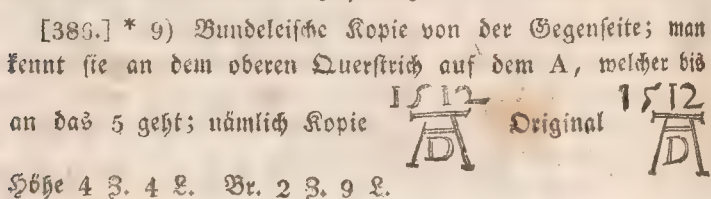 [386.] * 9) Bundeleische Kopie von der Gegenseite; man
kennt sie an dem oberen Querstrich auf dem A, welcher bis
an das 5 geht; nämlich Kopie 1512 AD Original 1512 AD
Höhe 4 Z. 4 L. Br. 2 Z. 9 L.